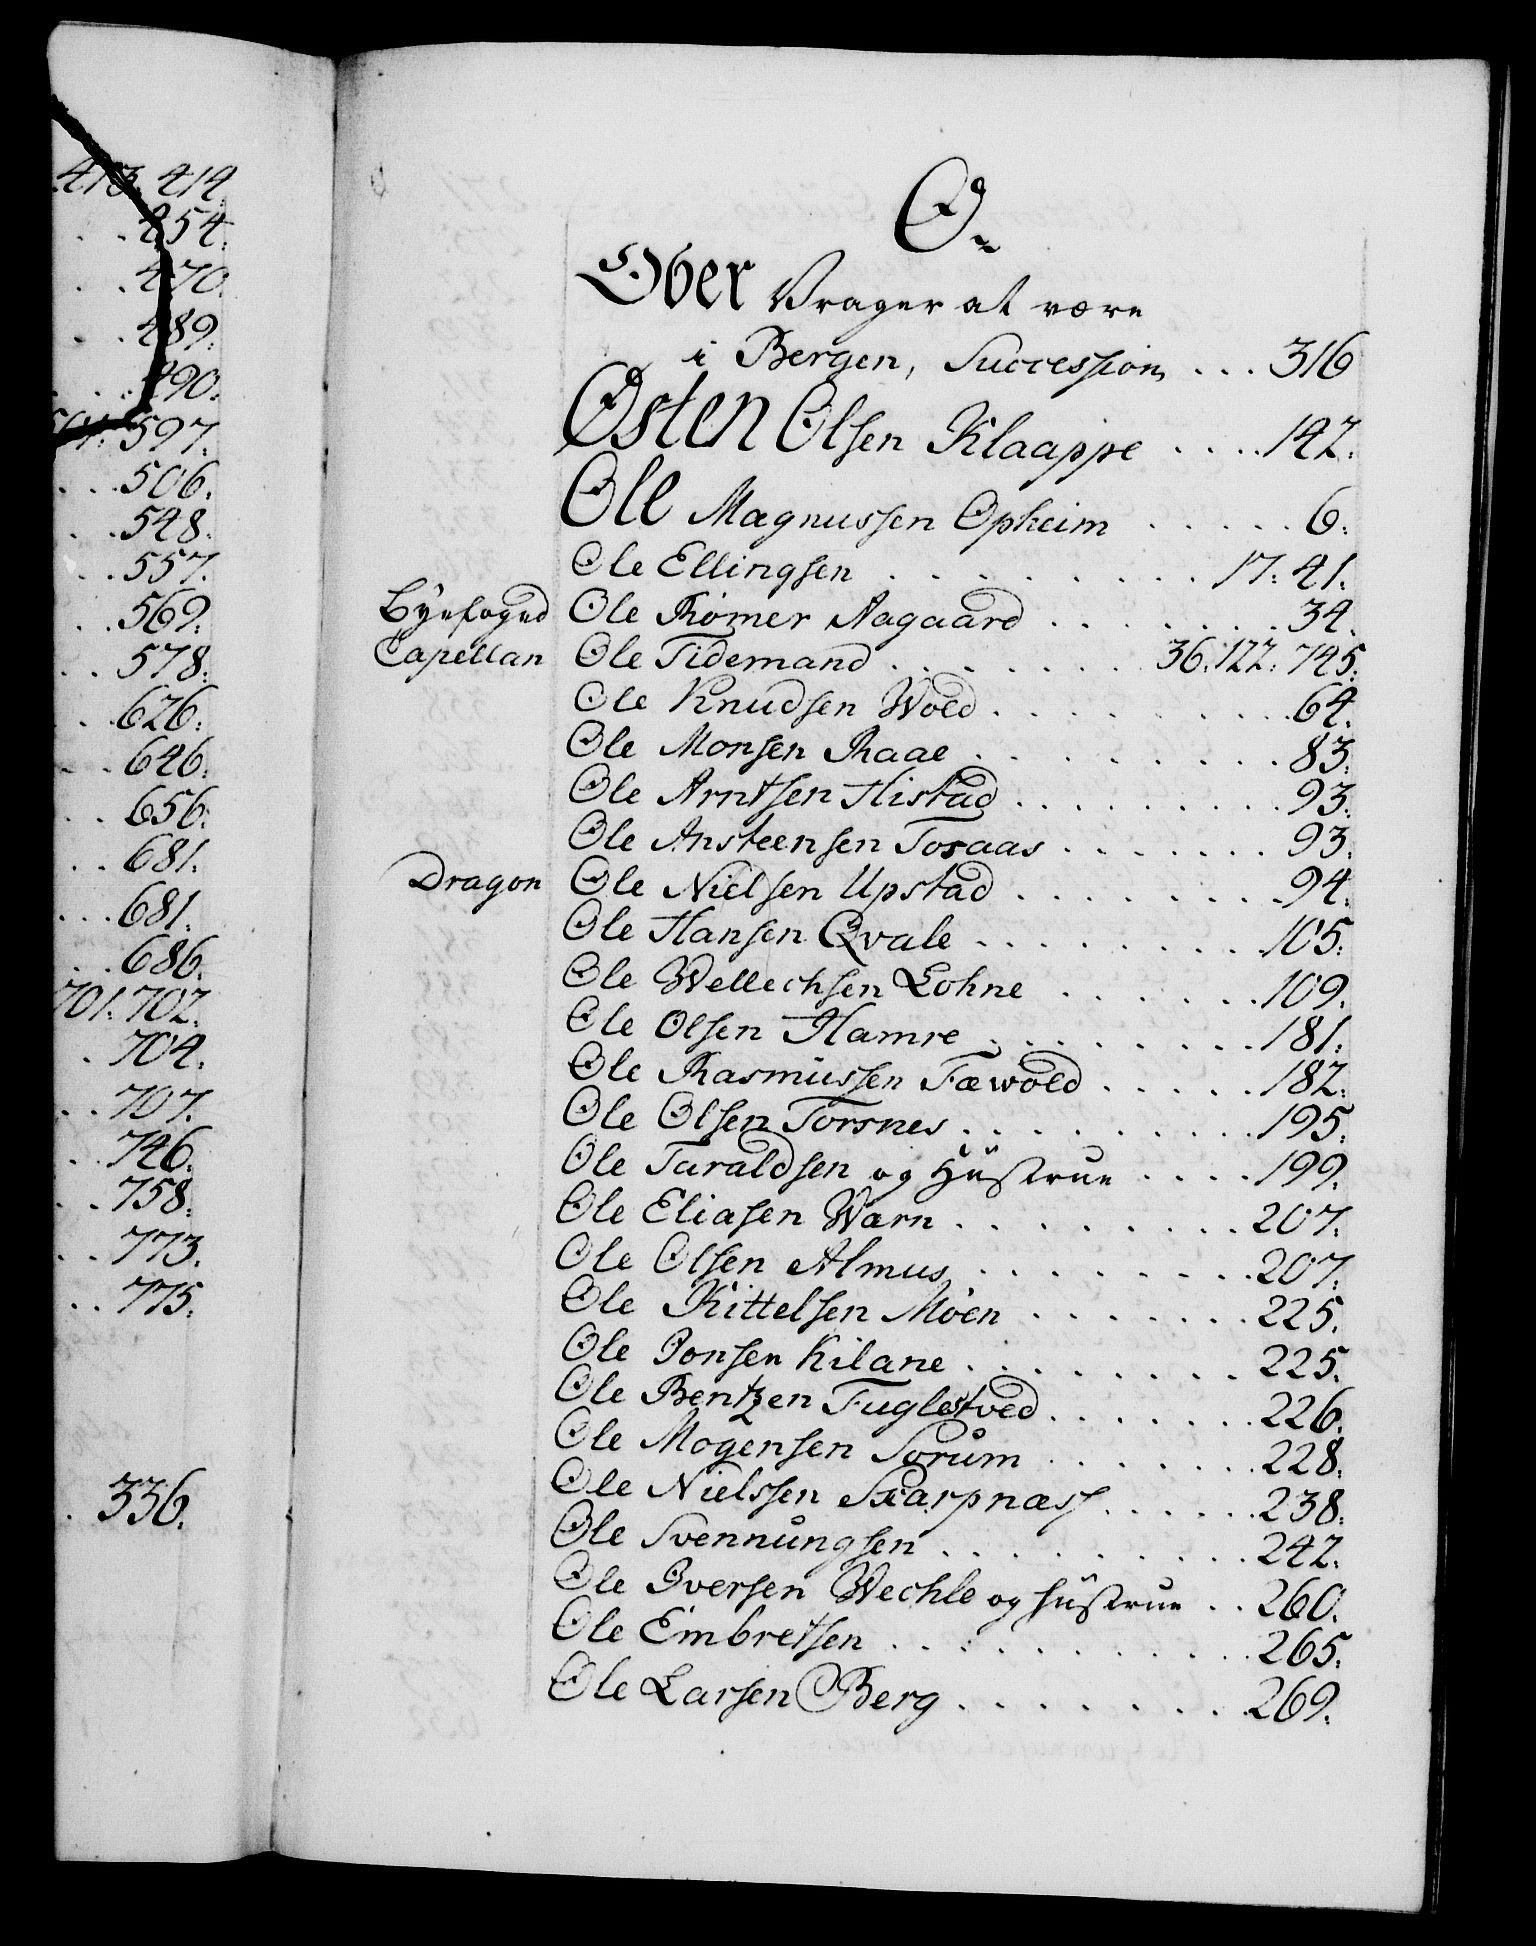 413. 414.
. . 454.
. . 470.
. . 489.
. . 490.
597.
. . . 506.
. . 548.
. . 557.
. . 569.
. . 578.
. . 626.
. . 646.
. . 656.
. . 681.
. . . 681.
. . 686.
701. 702.
. 704.
. . 707.
. . 746.
. . 758.
. . 773.
. . 775.
. 336.
O.
Ober Vrager at være
i Bergen, Succession . . . 316
Østen Olsen Klaappe . . . . 142.
Ole Magnussen Opheim . . . . . 6.
Ole Ellingsen . . . . . . . . 17. 41.
Byefoged Ole Rømer Aagaard . . . . . . . 34.
Capellan Ole Tidemand . . . . . . 36. 122. 745.
Ole Knudsen Wold . . . . . . . . . 64.
Ole Monsen Raae . . . . . . . . . 83.
Ole Arntsen Histad . . . . . . . . . 93.
Ole Ansteensen Tosaas . . . . . . . 93.
Dragon Ole Nielsen Upstad . . . . . . . . 94.
Ole Hansen Qvale . . . . . . . . 105.
Ole Wellechsen Lohne . . . . . . . 109.
Ole Olsen Hamre . . . . . . . . 181.
Ole Rasmussen Fæwold . . . . . 182.
Ole Olsen Torsnes . . . . . . . . . 195.
Ole Taraldsen og Hustrue . . . . 199.
Ole Eliasen Warn . . . . . . . . . 207.
Ole Olsen Almus . . . . . . . . 207.
Ole Kittelsen Möen . . . . . . . 225.
Ole Jonsen Kilane . . . . . . . . 225.
Ole Bentzen Fuglestved . . . . . . . 226.
Ole Mogensen Sorum . . . . . . . 228.
Ole Nielssen Skarpnæss . . . . . . 238.
Ole Svennungsen . . . . . . . . . 242.
Ole Iversen Wechle og Hustrue . . 260.
Ole Embretsen . . . . . . . . . . 265.
Ole Larsen Berg . . . . . . . . 269.